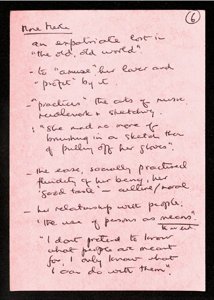 6
Mme Merle
an expatriate lost in
"the old, old world".
- to "amuse" her lover and
"profit" by it.
- "practices" the arts of music
needlework & sketching.
: "She made no more of
brushing in a sketch than
of pulling off her gloves".
- the ease, socially practised
fluidity of her being, her
'good taste' - culture/moral
- her relationship with people:
'the use of persons as means'.
Kant
"I don't pretend to know
what people are meant
for, I only know what
I can do with them".